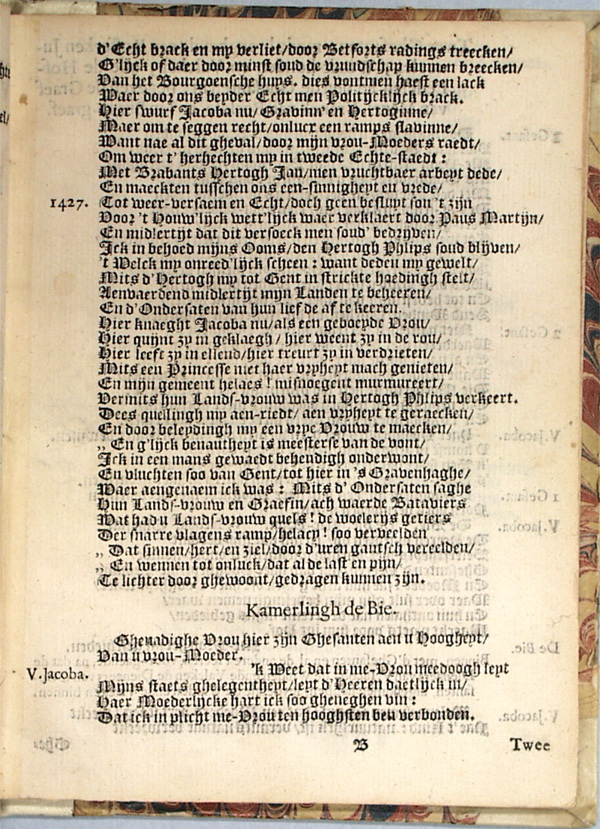 d'Echt brack en my verliet/door Betforts radings treecken/
G'lijck of daer door minst soud de vruudschap kunnen breecken/
Van het Bourgoensche huys. dies vontmen haest een lack
Waer door ons beyder Echt men Politijcklijck brack.
Hier swurf Jacoba nu/Gravinn' en Hertoginne/
Maer om te seggen recht/onlucx een ramps slavinne/
Want nae al dit gheval/door mijn vrou-Moeders raedt/
Om weer t' herhechten my in tweede Echte-staedt:
Met Brabants Hertogh Jan/men vruchtbaer arbeyt dede/
En maeckten tusschen ons een-sinnigheyt en vrede/
1427. Tot weer-versaem en Echt/doch geen besluyt sou 't zijn
Voor 't Houw'lijck wett'lijck waer verklaert door Paus Martijn/
En midlertijt dat dit versoeck men soud' bedrijven/
Ick in behoed mijns Ooms/den Hertogh Phlips soud blijven/
't Welck my onreed'lijck scheen: want deden my gewelt/
Mits d'Hertogh my tot Gent in strickte hoedingh stelt/
Aenvaerdend midlertijt mijn Landen te beheeren/
En d'Ondersaten van hun lief de af te keeren.
Hier knaeght Jacoba nu/als een geboeyde Vrou/
Hier quijnt zy in geklaegh/hier weent zy in de rou/
Hier leeft zy in ellend/hier treurt zy in verdrieten/
Mits een Princesse niet haer vryheyt mach genieten/
En mijn gemeent helaes! misnoegent murmureert/
Vermits hun Lands-vrouw was in Hertogh Phlips verkeert.
Dees quellingh my aen-riedt/aen vryheyt te geraecken/
En door beleydingh my een vrye Vrouw te maecken/
„ En g'lijck benautheyt is meesterse van de vont/
Ick in een mans gewaedt behendigh onderwont/
En vluchten soo van Gent/tot hier in 's Gravenhaghe/
Waer aengenaem ick was: Mits d' Ondersaten saghe
Hun Lands-vrouw en Graefin/ach waerde Bataviers
Wat had u Lands-vrouw quels! de woelerijs getiers
Der snarre vlagens ramp/helacy! soo verveelden
„ Dat sinnen/hert/en ziel/door d'uren gantsch vereelden/
„ En wennen tot onluck/dat al de last en pijn/
Te lichter door ghewoont/gedragen kunnen zijn.
Kamerlingh de Bie.
Ghenadighe Vrou hier zijn Ghesanten aen u Hoogheyt/
Van u vrou-Moeder.
V. Jacoba. 'k Weet dat in me-Vrou meedoogh leyt
Mijns staets ghelegentheyt/leyt d'Heeren daetlijck in/
Haer Moederlijcke hart ick soo gheneghen vin:
Dat ick in plicht me-Vrou ten hooghsten ben verbonden.
B Twee